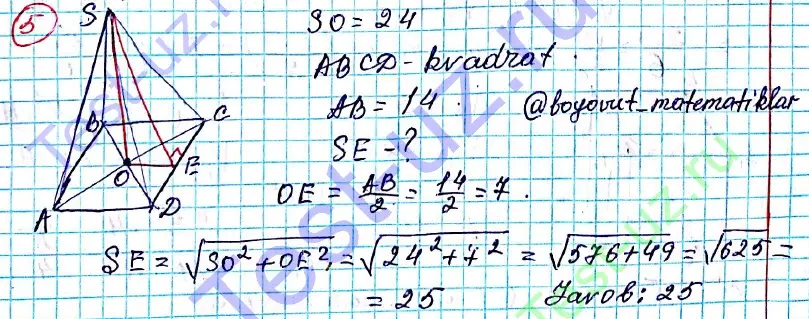 5
S
SO = 24
ABCD - kvadrat.
AB = 14.
@boyovut_matematiklar
SE - ?
B
C
O
E
A
D
OE = AB/2 = 14/2 = 7.
SE = √SO² + OE² = √24² + 7² = √576 + 49 = √625 =
= 25
Javob: 25
Test-uz.ru
Test-uz.ru
Test-uz.ru